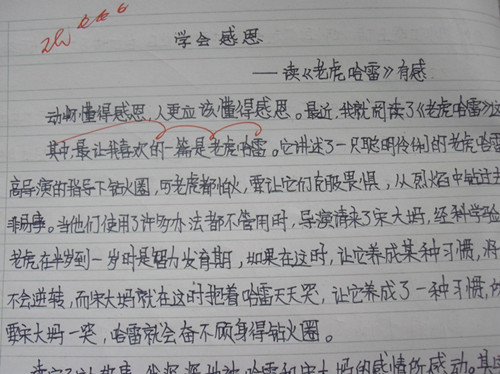 学会感恩
——读《老虎哈雷》有感
动物懂得感恩,人更应该懂得感恩。最近,我就阅读了《老虎哈雷》这
其中,最让我喜欢的一篇是老虎哈雷。它讲述了一只聪明伶俐的老虎哈雷
高导演的指导下钻火圈,可老虎都怕火,要让它们克服畏惧,从烈焰中钻过去
非易事。当他们使用了许多办法都不管用时,导演请来了宋大妈,经科学验
老虎在半岁到一岁时是智力发育期,如果在这时,让它养成某种习惯,将
不会逆转,而宋大妈就在这时抱着哈雷天天哭,让它养成了一种习惯,
要宋大妈一哭,哈雷就会奋不顾身得钻火圈。
哈雷和宋大妈的感情所感动。其